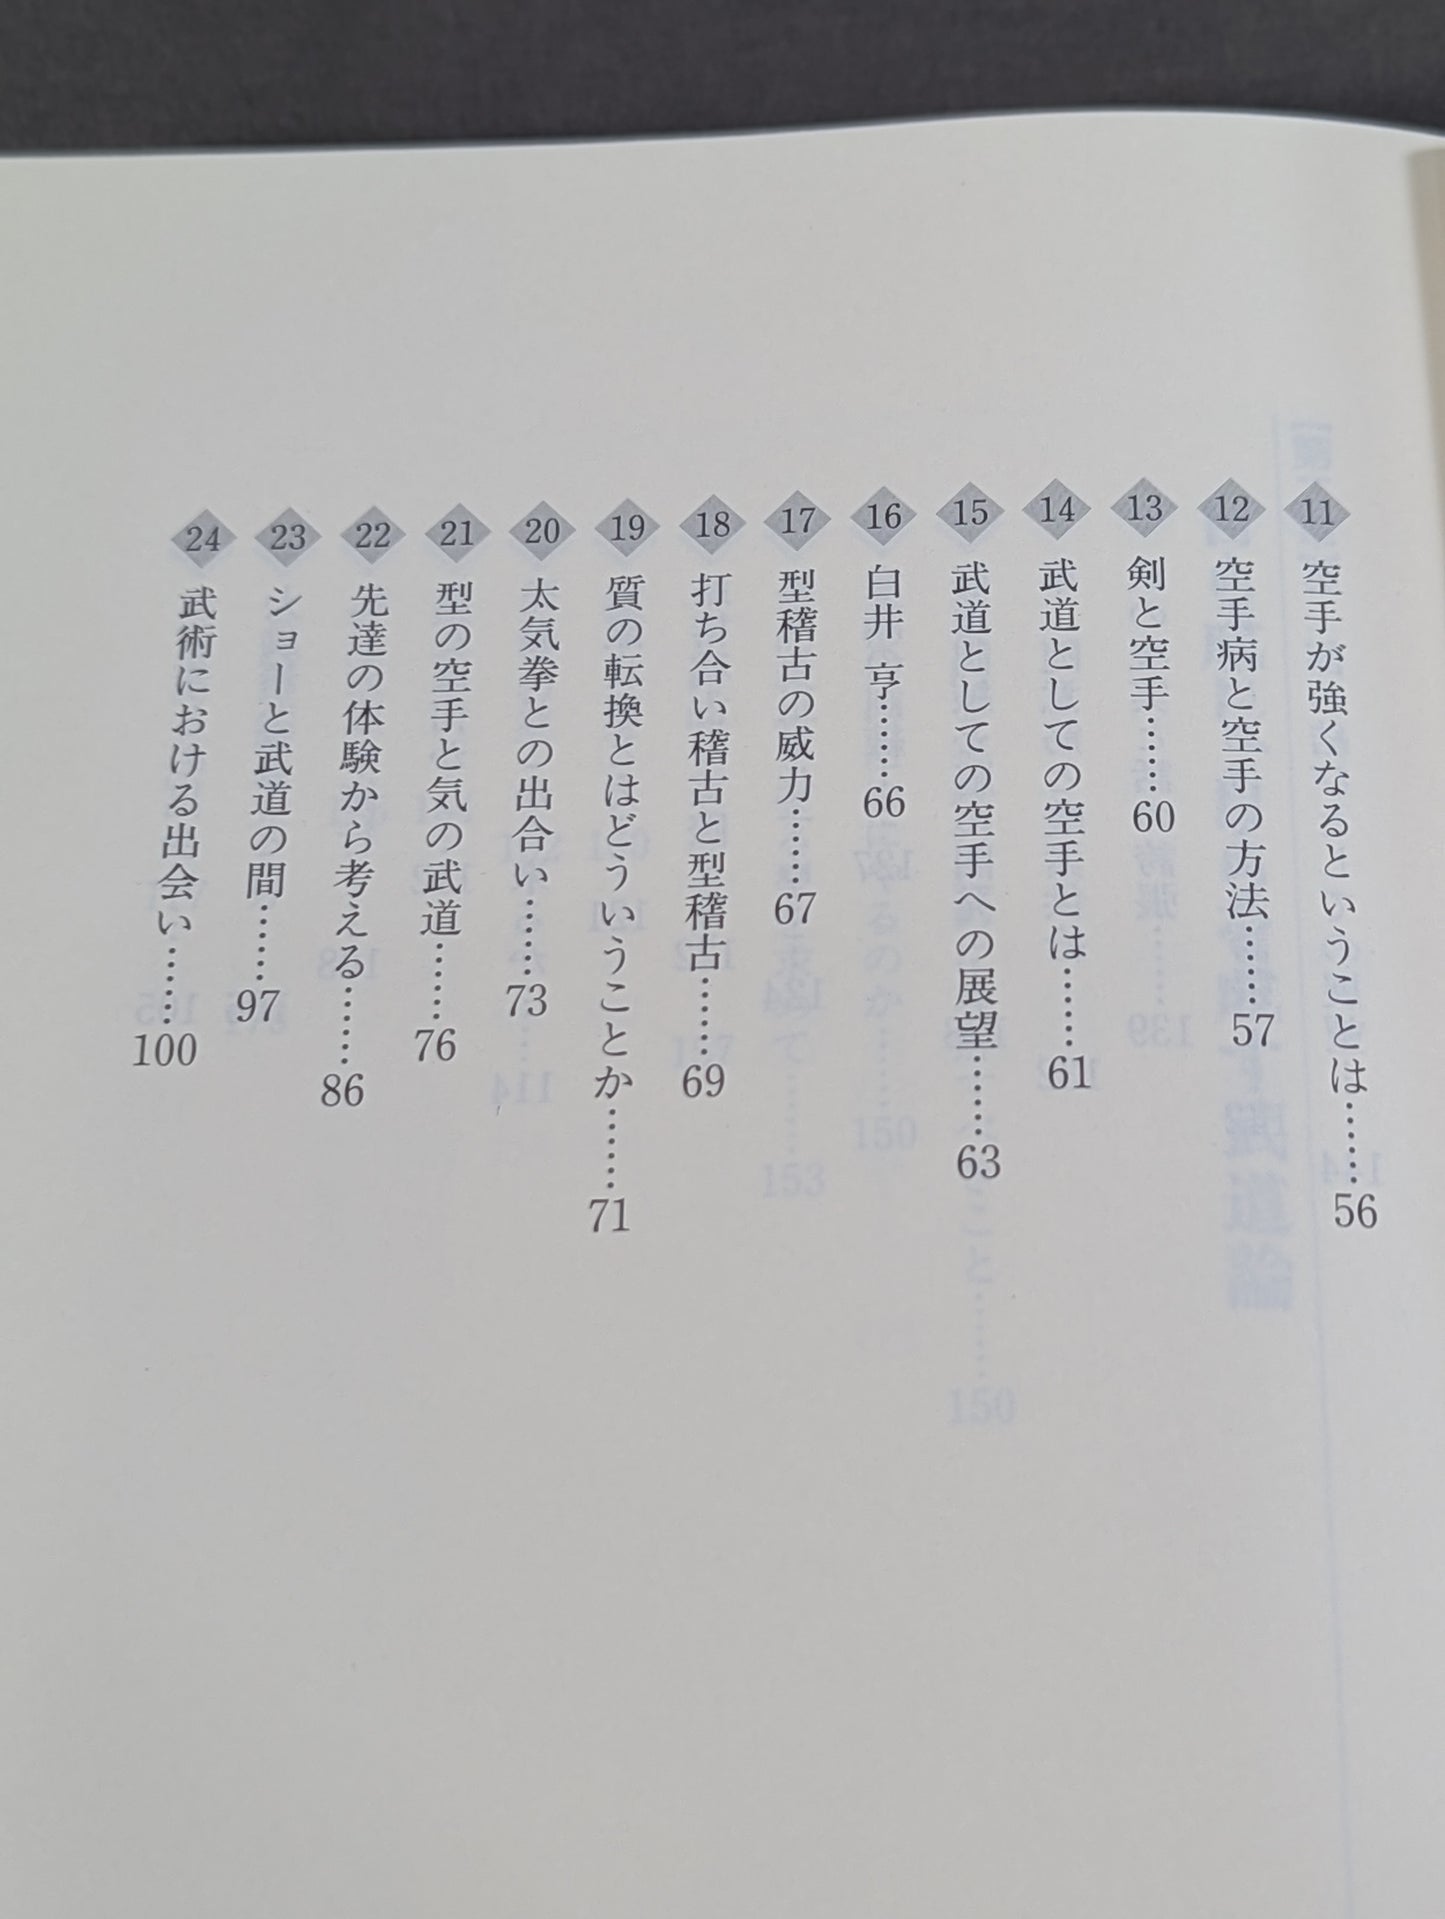 11 空手が強くなるということは……56
12 空手病と空手の方法……57
13 剣と空手……60
14 武道としての空手とは……61
15 武道としての空手への展望……63
16 白井 亨……66
17 型稽古の威力……67
18 打ち合い稽古と型稽古……69
19 質の転換とはどういうことか……71
20 太気拳との出合い……73
21 型の空手と気の武道……76
22 先達の体験から考える……86
23 ショーと武道の間……97
24 武術における出会い……100